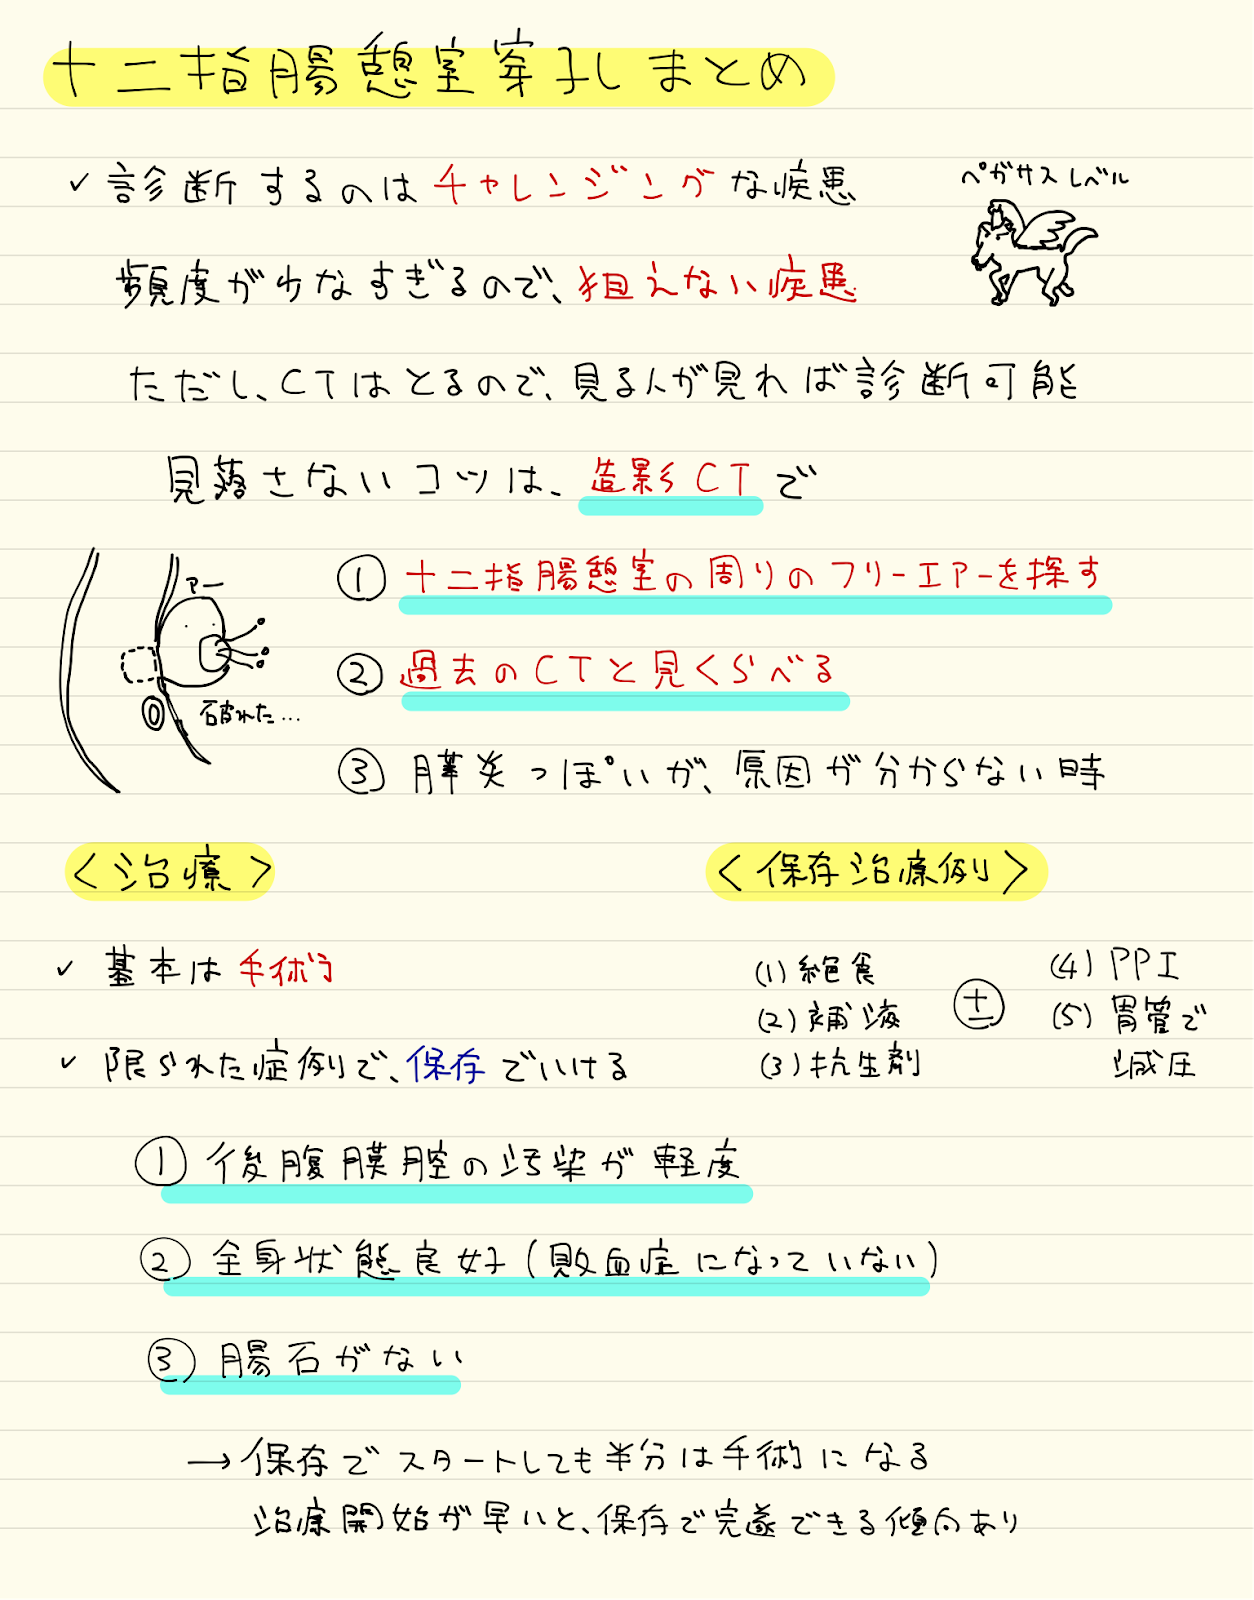 十二指腸憩室穿孔まとめ
✓ 診断するのはチャレンジングな疾患
ペガサスレベル
頻度が少なすぎるので、狙えない疾患
ただし、CTはとるので、見る人が見れば診断可能
見落さないコツは、造影CTで
① 十二指腸憩室の周りのフリーエアーを探す
② 過去のCTと見くらべる
③ 膵炎っぽいが、原因が分からない時
アー
破れた…
<治療>
✓ 基本は手術
✓ 限られた症例で、保存でいける
① 後腹膜腔の汚染が軽度
② 全身状態良好(敗血症になっていない)
③ 腸石がない
→ 保存でスタートしても半分は手術になる
治療開始が早いと、保存で完遂できる傾向あり
<保存治療例>
(1) 絶食
(2) 補液
(3) 抗生剤
±
(4) PPI
(5) 胃管で
減圧